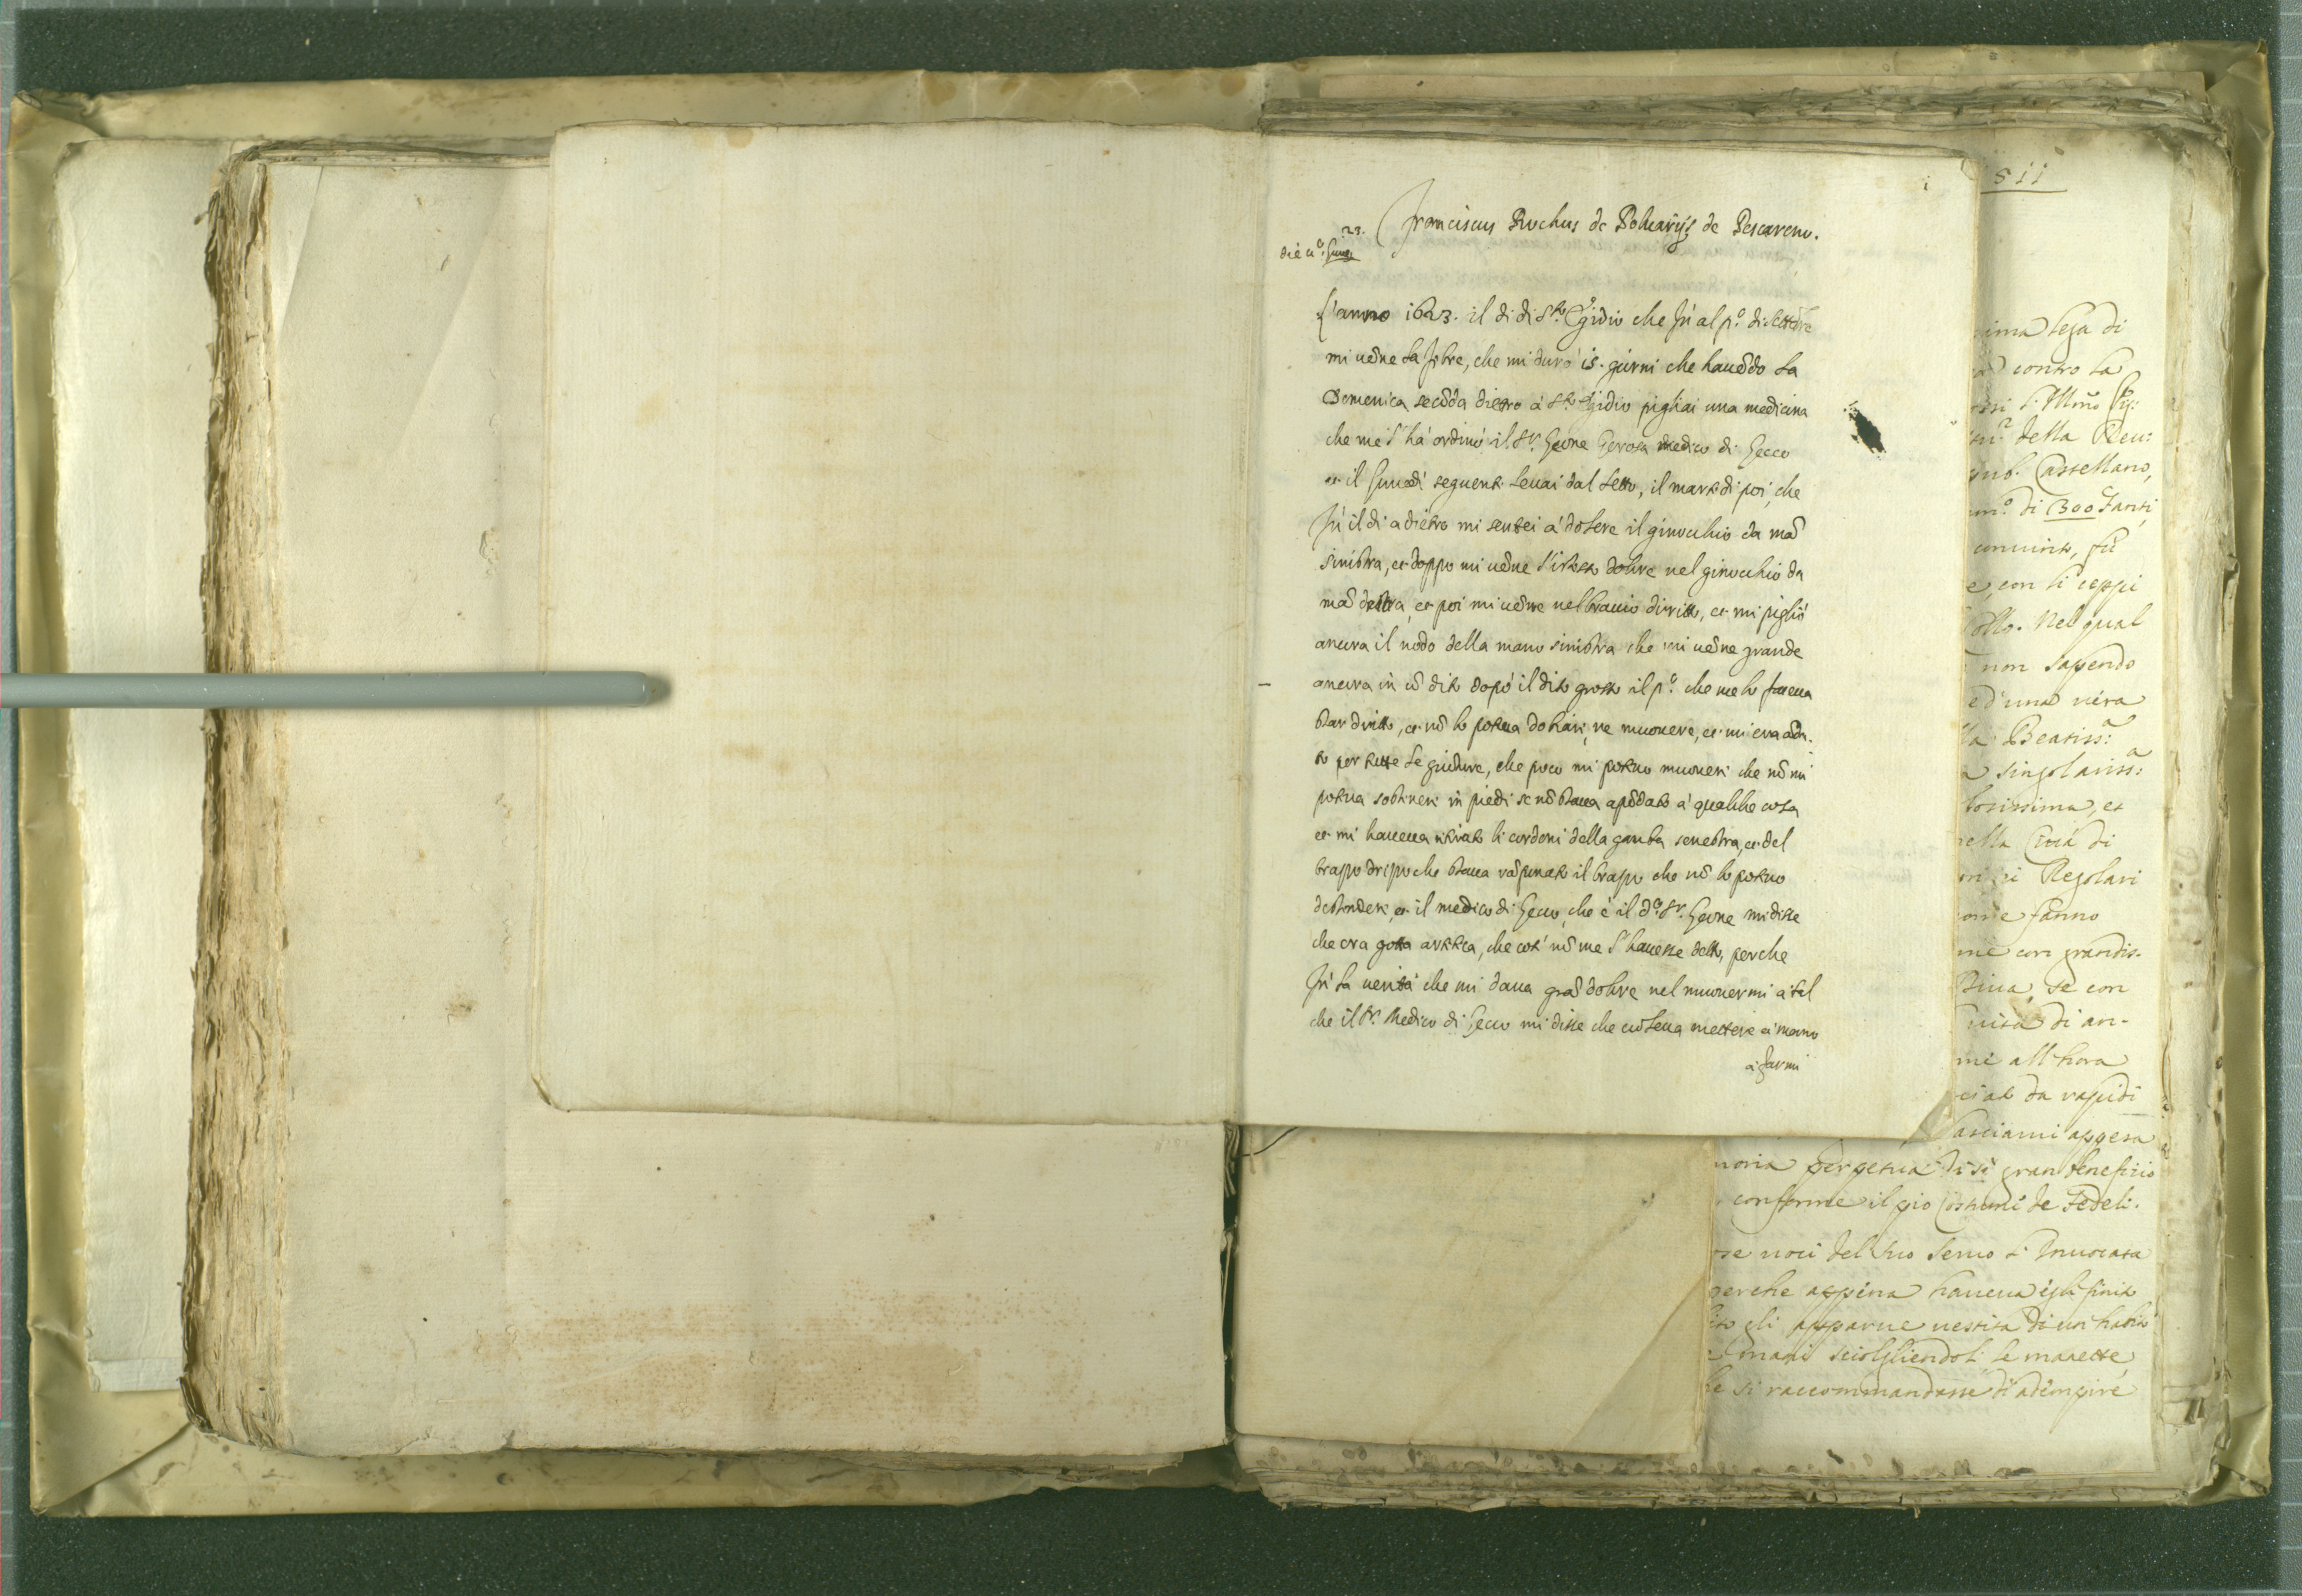 i
Franciscus Rochus de Polvarijs de Pescareno.
23.
die
L'anno 1623. il di di S.to Egidio che fu al p.o di settēbre
mi uēne la febre, che mi durò 15. giorni che hauēdo la
Domenica secōda dietro à S.to Egidio pigliai una medicina
che me l'hà ordinò il S.r Leone Gerosa medico di Lecco
et il Lunedì seguente leuai dal letto, il martedi poi, che
fù il di adietro mi sentei à dolere il ginocchio da mā
sinistra, et doppo mi uēne l'istesso dolore nel ginocchio da
mā destra, et poi mi uēne nel braccio diritto, et mi pigliò
ancora il nodo della mano sinistra che mi uēne grande
ancora in ū dito dopò il dito grosso il p.o che me lo faceua
star diritto, et nō lo poteua dohiare, ne muouere, et mi era āda-
to per tutte le giunture, che poco mi poteuo muouere che nō mi
poteua sostenere in piedi se nō staua apōdato à qualche cosa
et mi haueua ritirato li cordoni della gamba senestra, et del
brazzo drizo che staua rāpinato il brazzo che nō lo poteuo
destendere, et il medico di Lecco, che è il d.o S.r Leone mi disse
che era gotta artetica, che cosi nō me l'hauesse detto, perche
fù la uerità che mi daua grā dolore nel muouermi à tal
che il S.r Medico di Lecco mi disse che uoleua mettere à mano
à farmi
511
lega di
contro la
Ill.mo
della Reu:
Castellano,
di 300 fanti,
conuinto, fù
e, con li ceppi
collo. Nel qual
non sapendo
ed'una uera
la Beatiss.a
a singolariss.a
losissima, et
nella Città di
Regolari
come fanno
me con grandis-
Diua, se con
uita di an-
me all'hora
ciato da rapidi
lasciarui appesa
moria perpetua di si gran benefizio
conforme il pio costume de Fedeli.
ose uoci del suo seruo l'Inuocata
perche appena haueua egli finito
ito gli apparue uestita di un habito
mani sciogliendoli le manette
he si raccommandasse d'adempire